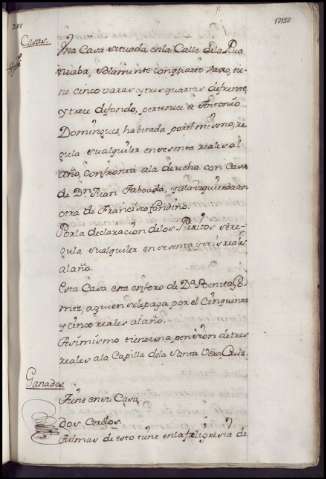 Casas.
Una Casa situada, en la Calle de la Rua
nueba, solamente con quarto vajo, tie-
ne cinco varas y tres quartas de frente,
y trece de fondo, pertenece a Antonio
Dominguez, havitada por el mismo, re-
gula su alquiler en sesenta reales al
año, confronta a la derecha con Casa
de Dn Juan Taboada, y a la izquierda con
otra de Francisco fandiño.
Por la declaracion de los Peritos se re-
gula su alquiler en sesenta y seis reales
al año.
Esta Casa esta en foro de Dn Benito Go-
mez, a quien se le paga por el Cinquenta
y cinco reales al año.
Asimismo tiene una pension de tres
reales a la Capilla de la Santa Vera Cruz.
Ganados
Tiene en su Casa,
Dos Cerdos,
Ademas de esto tiene en la feligresia de